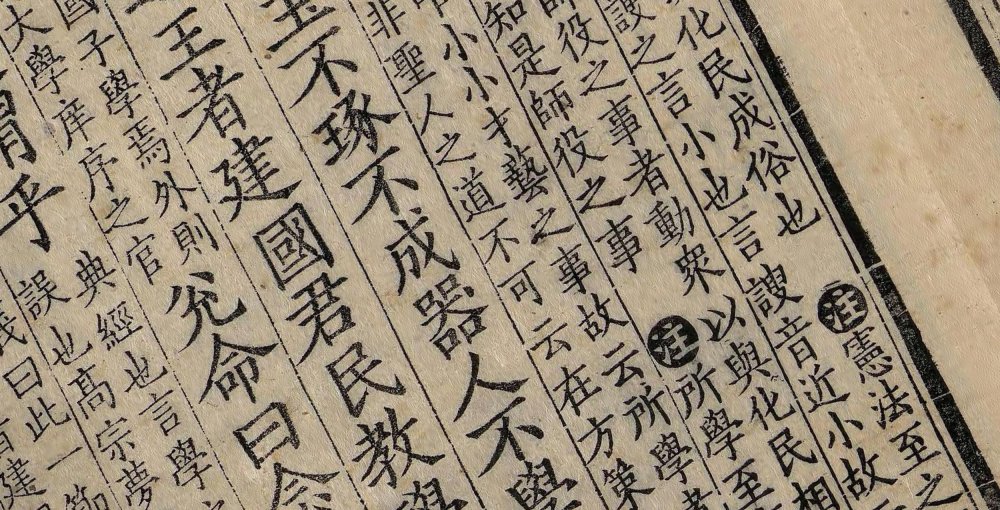 化民成俗也注憲法至之
謏之言小也言謏音近小故
役之事者動衆以與化民相
知是師役之事注所學至
小小才藝之事故云所學者
非聖人之道不可云在方策
玉不琢不成器人不學
王者建國君民教學
國子學焉外則
大學庠序之官
兌命曰念
謂乎
典經也言學
誤也高宗夢
義曰此一節
建